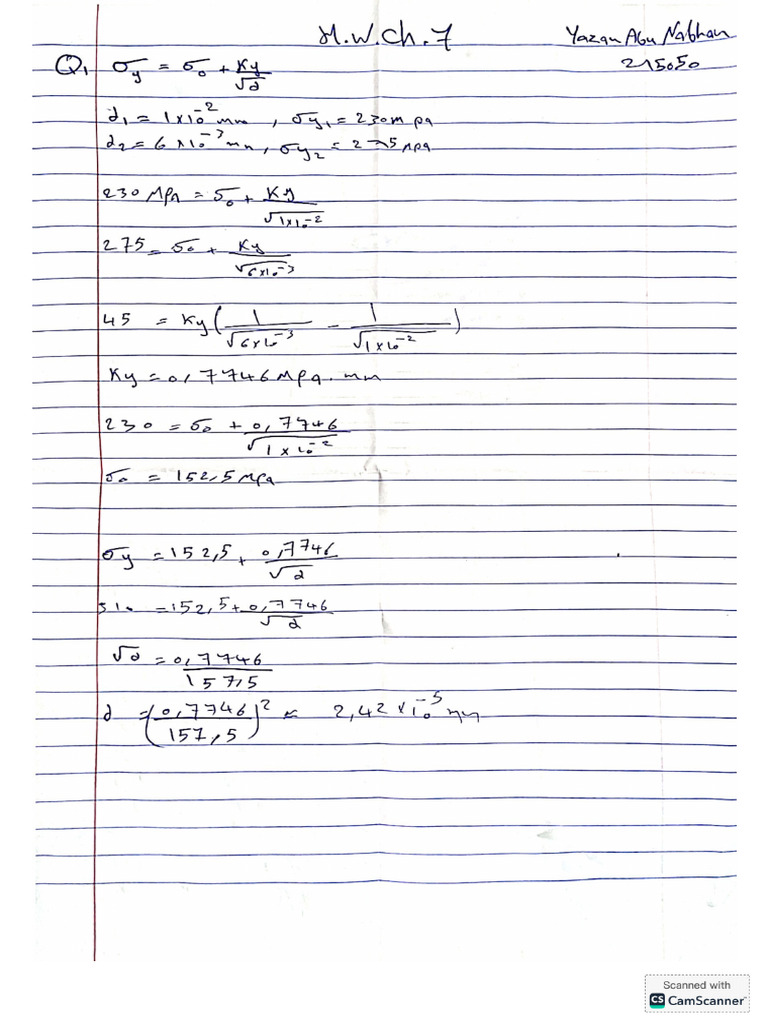 H.W.Ch.7
Yazan Abu Nabhan
215050
Q1 σy = σ0 + Ky/√d
d1 = 1×10^-2 mm , σy1 = 230 Mpa
d2 = 6×10^-3 mm, σy2 = 275 Mpa
230 MPa = σ0 + Ky/√(1×10^-2)
275 = σ0 + Ky/√(6×10^-3)
45 = Ky(1/√(6×10^-3) - 1/√(1×10^-2))
Ky = 0,7746 Mpa.mm
230 = σ0 + 0,7746/√(1×10^-2)
σ0 = 152,5 Mpa
σy = 152,5 + 0,7746/√d
310 = 152,5 + 0,7746/√d
√d = 0,7746/157,5
d = (0,7746/157,5)^2 = 2,42×10^-5 mm
Scanned with
CS CamScanner